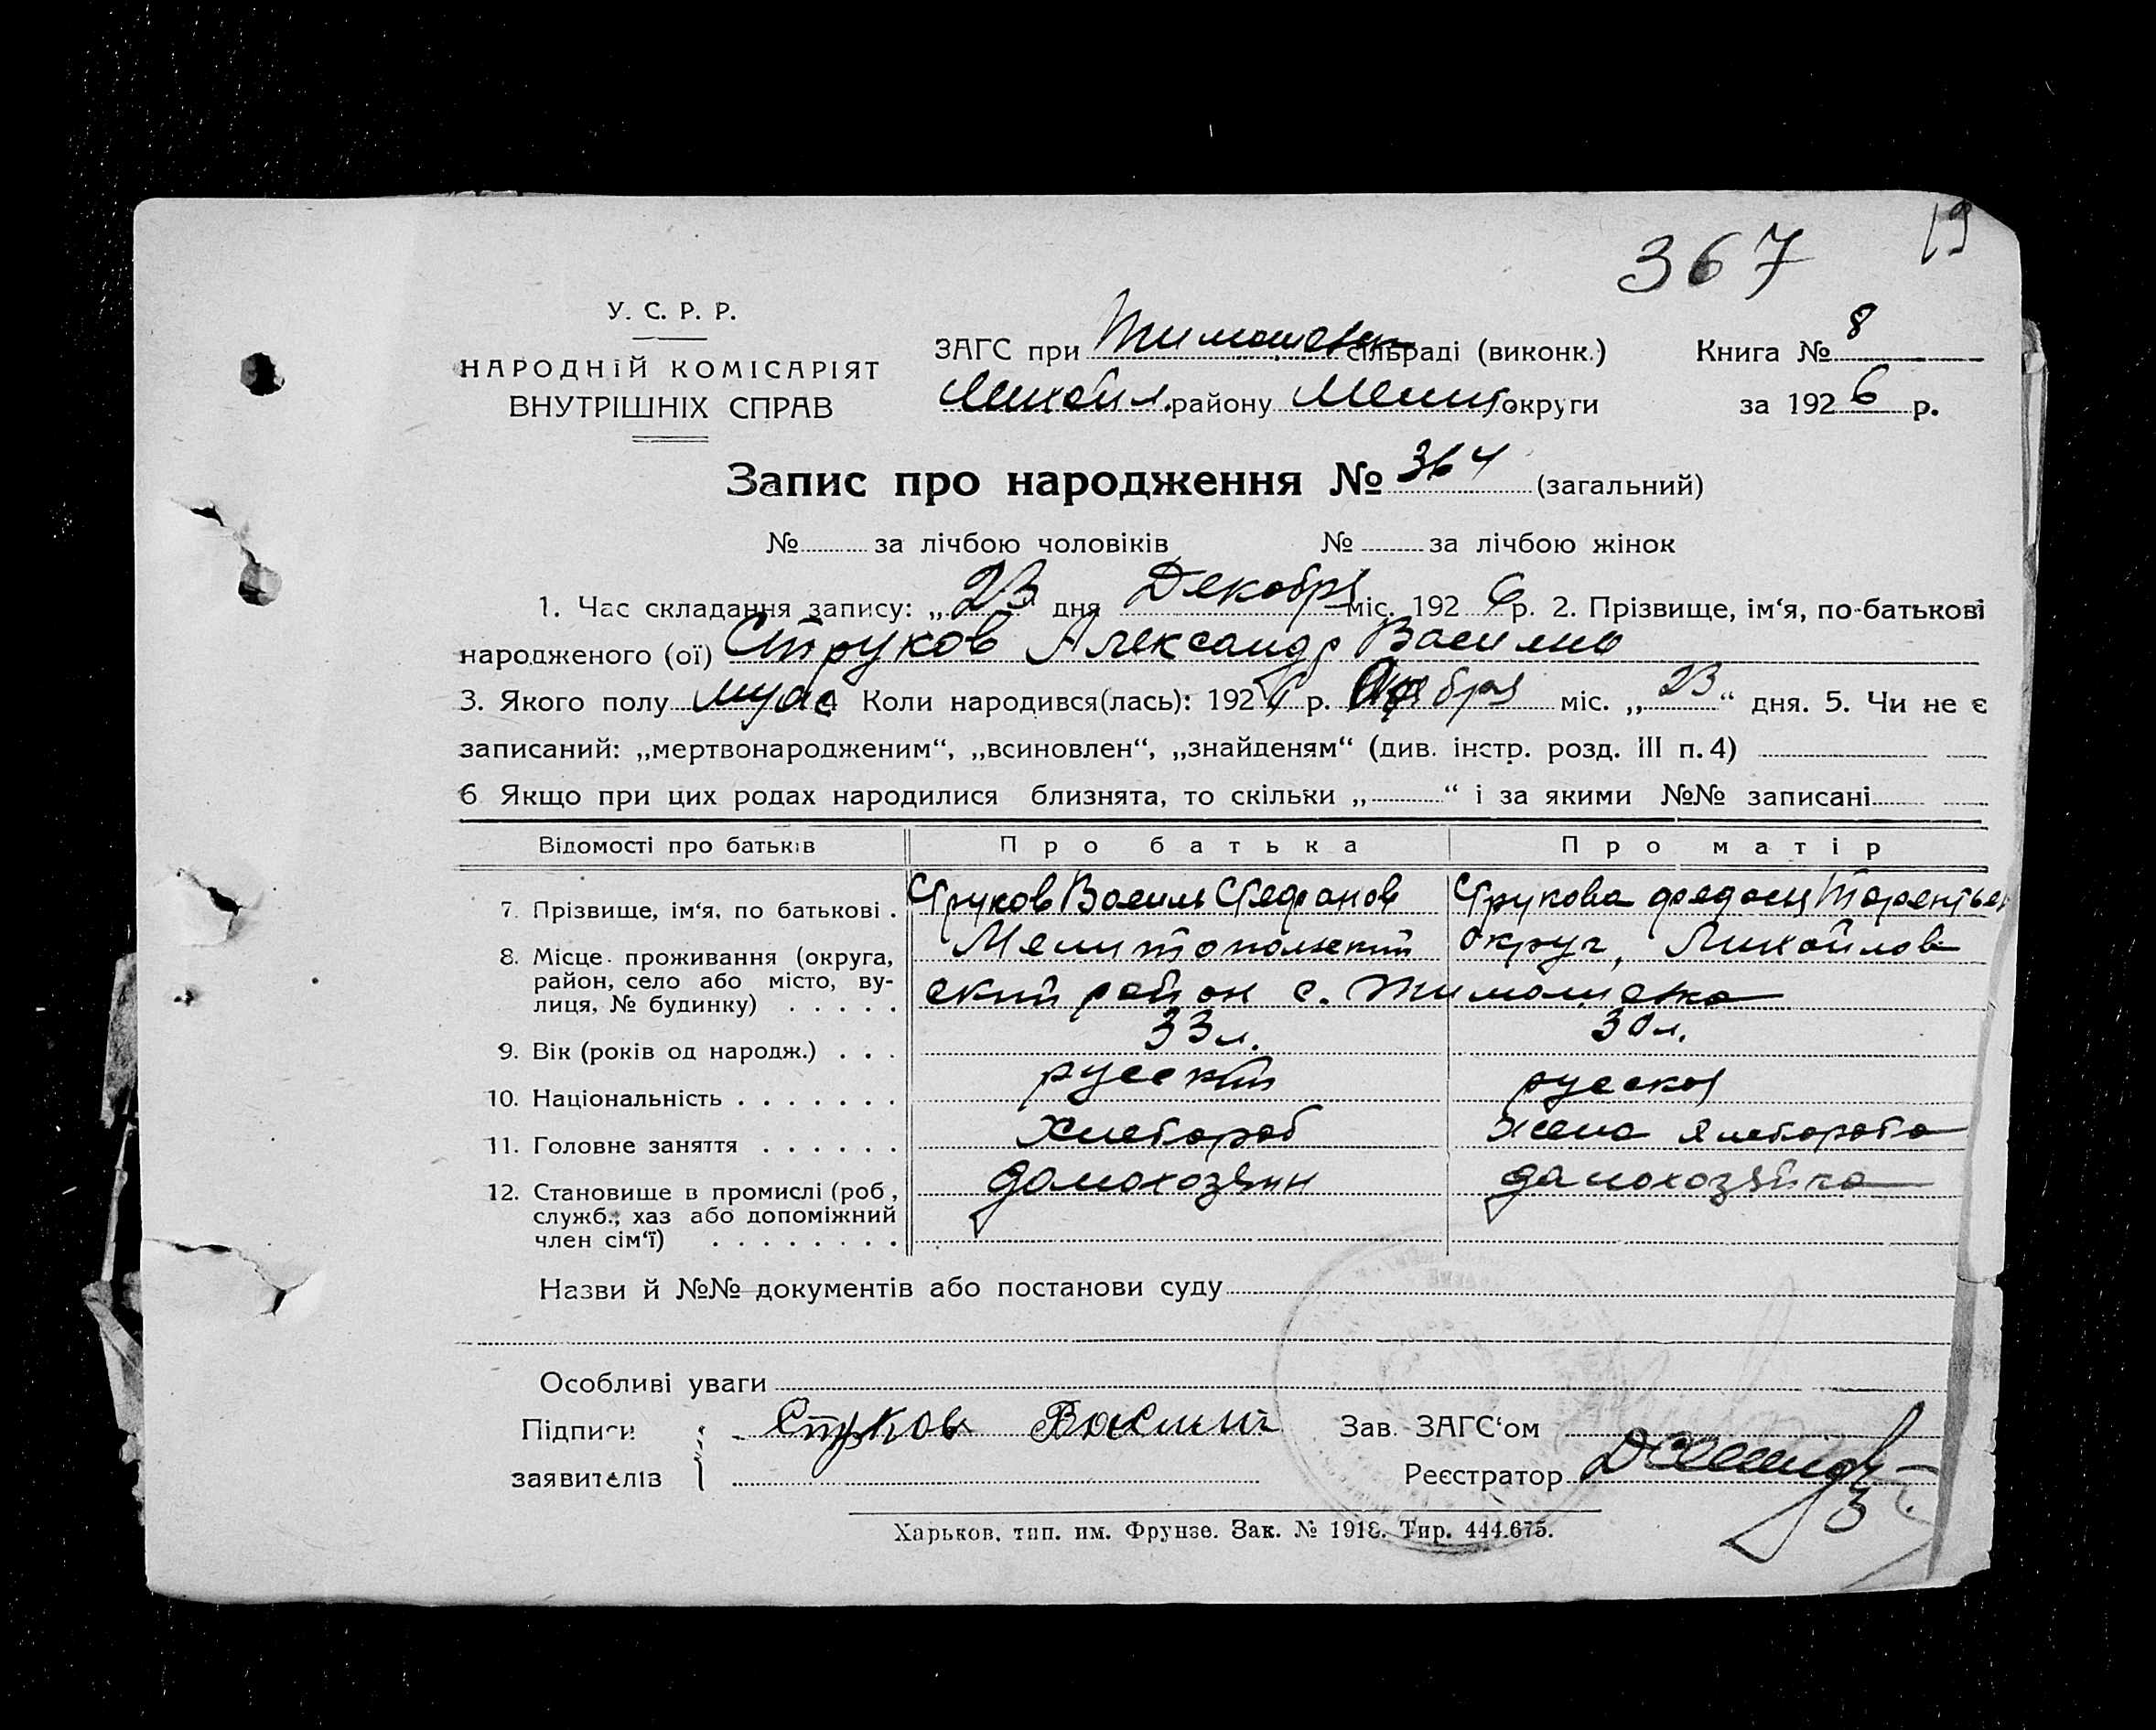 19
367
У. С. Р. Р.
НАРОДНІЙ КОМІСАРІЯТ
ВНУТРІШНІХ СПРАВ
ЗАГС при Тимошовск сільраді (виконк.) Книга № 8
Михайл. району Мелит округи за 1926 р.
Запис про народження № 364 (загальний)
№ за лічбою чоловіків № за лічбою жінок
1. Час складання запису: „23 дня Декабря міс. 1926 р. 2. Прізвище, ім‘я, по-батькові
народженого (ої) Струков Александр Василив
3. Якого полу муж 4 Коли народився(лась): 1926 р. міс. „23“ дня. 5. Чи не є
записаний: „мертвонародженим“, „всиновлен“, „знайденям“ (див. інстр. розд. III п. 4)
6 Якщо при цих родах народилися близнята, то скільки „ “ і за якими №№ записані
Відомості про батьків Про батька Про матір
7. Прізвище, ім‘я, по батькові . Струков Василь Стефанов Струкова Федосия Терентьев
8. Місце проживання (округа, Мелитопольский округ, Михайлов-
район, село або місто, ву- ский район с. Тимошовка
лиця, № будинку) . . . . .
9. Вік (років од народж.) . . . 33 л. 30 л.
10. Національність . . . . . . . русский русская
11. Головне заняття . . . . . . Хлебороб жена хлебороба
12. Становище в промислі (роб., домохозяин домохозяйка
служб., хаз або допоміжний
член сім‘ї) . . . . . . . .
Назви й №№ документів або постанови суду
Особливі уваги
Підписи Струков Василий Зав. ЗАГС‘ом
заявителів Реєстратор
Харьков, тип. им. Фрунзе. Зак. № 1918. Тир. 444.675.